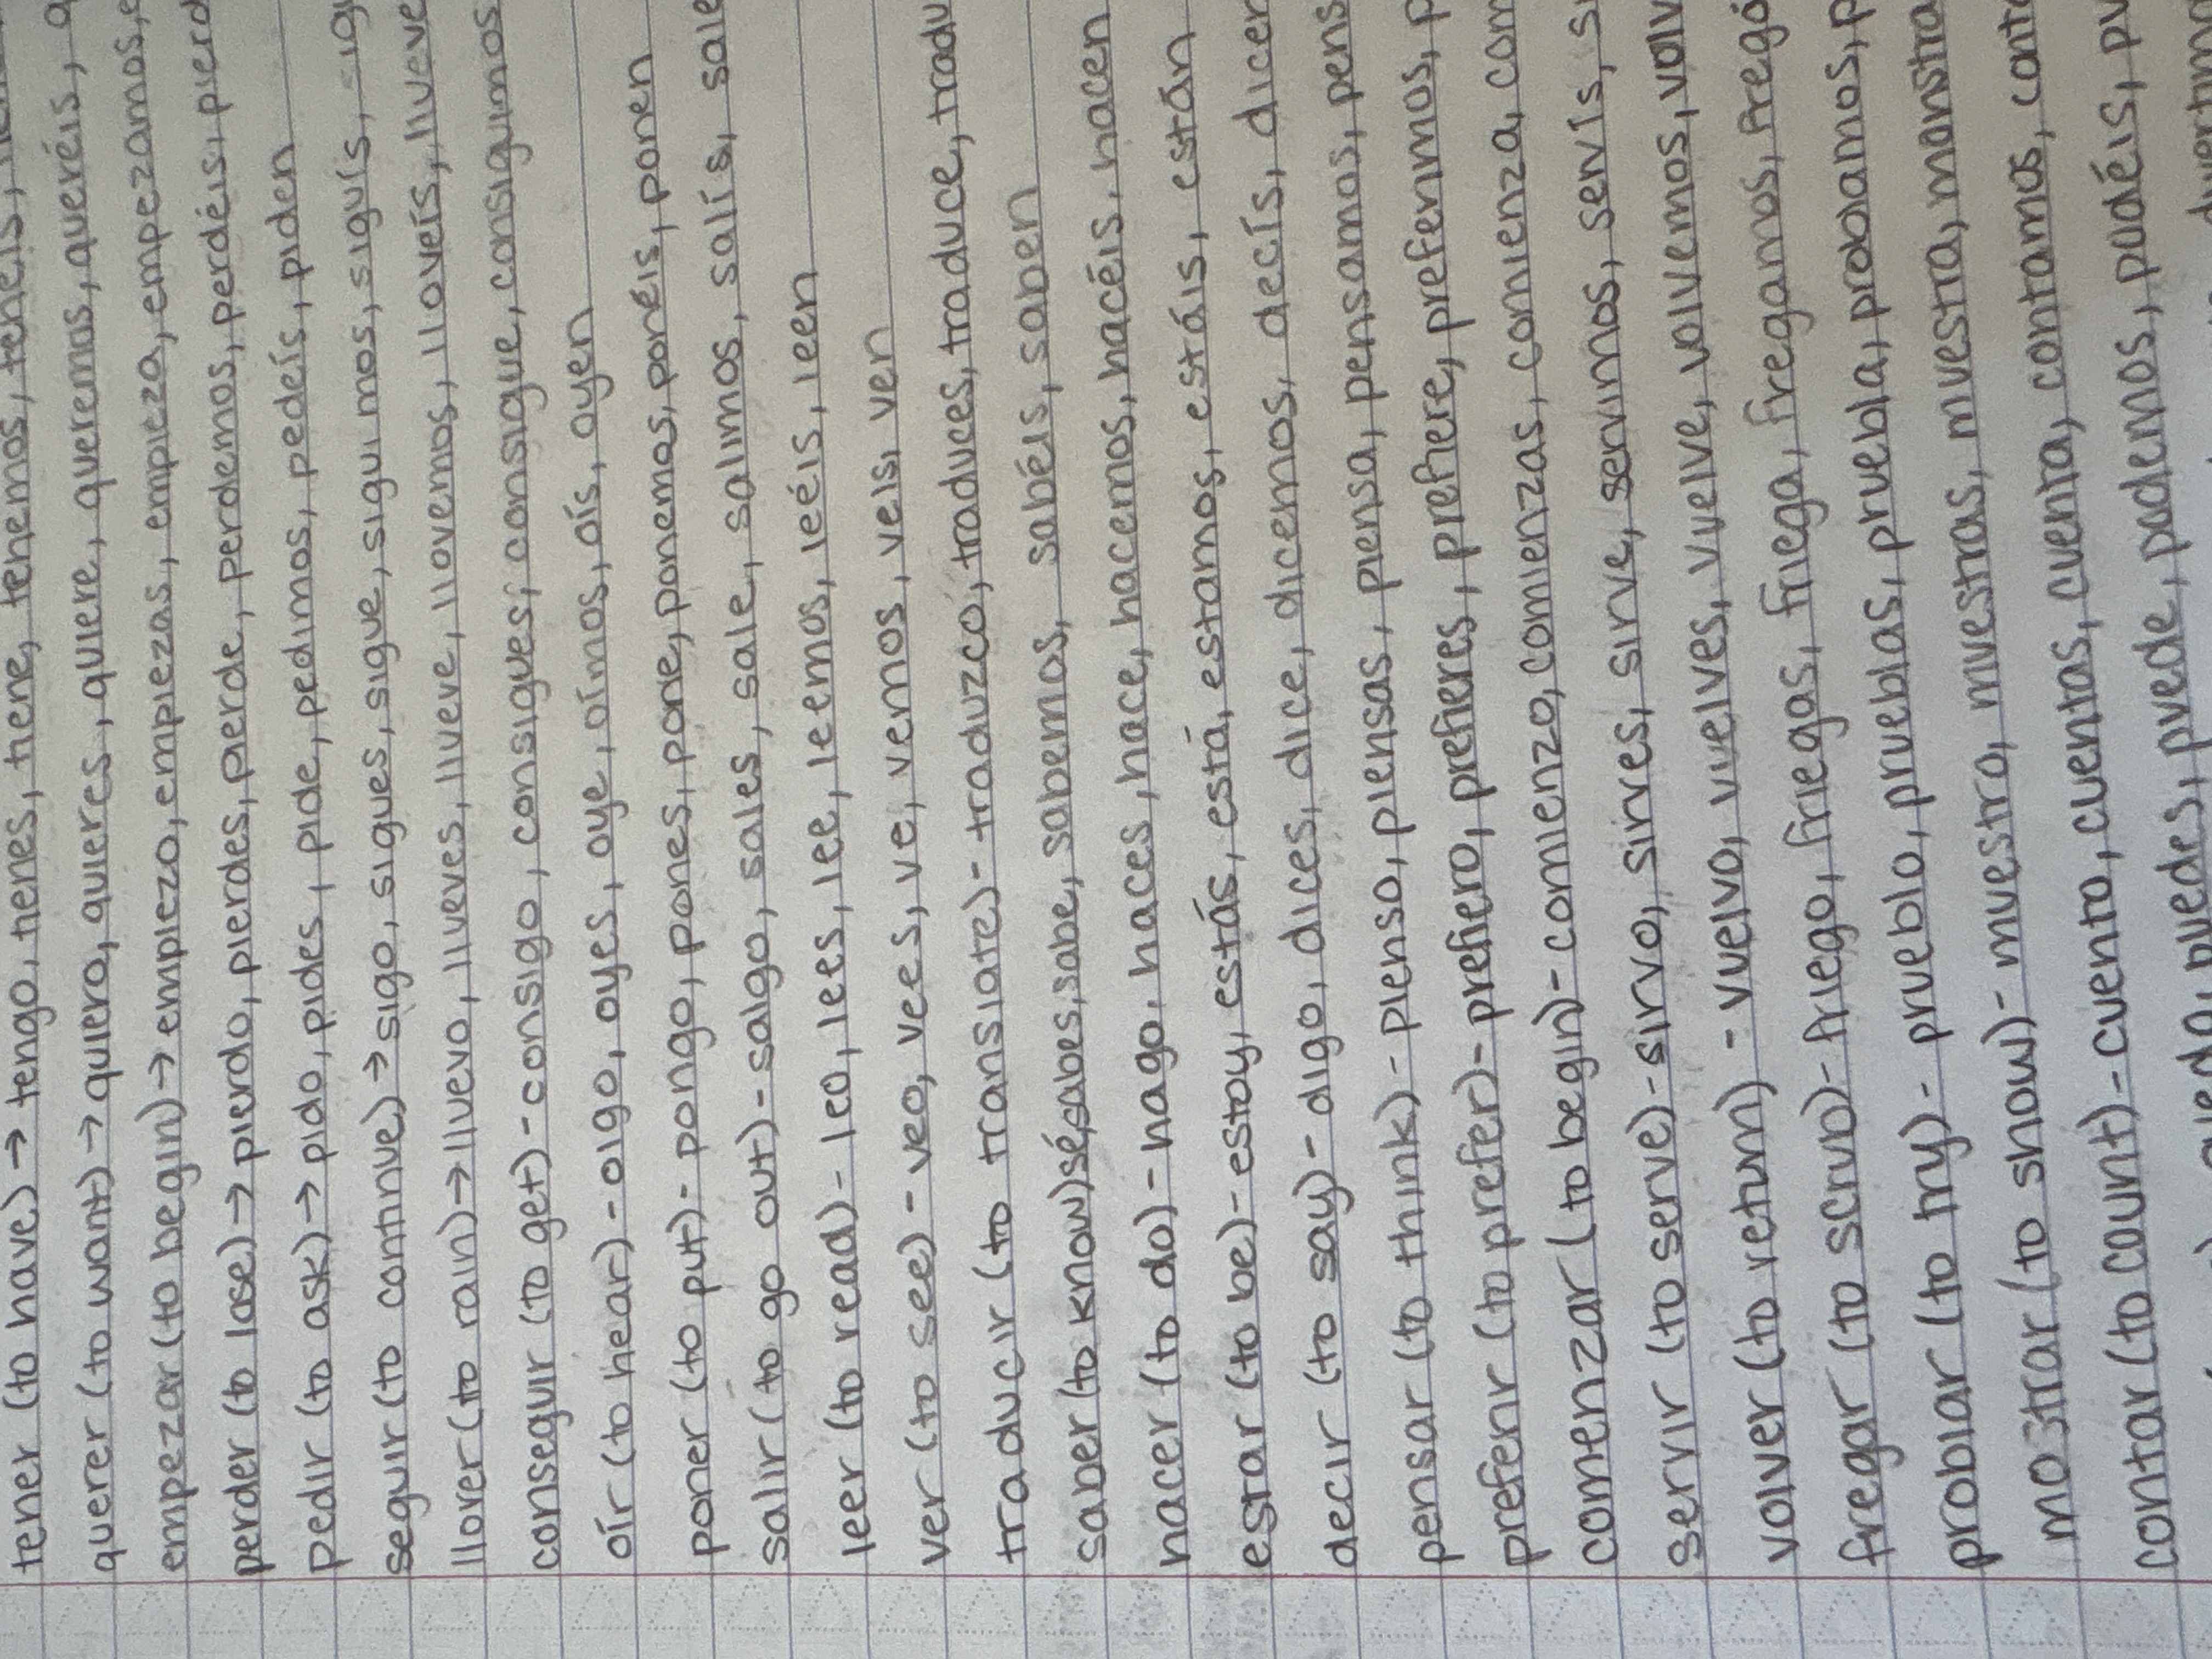 tener (to have) → tengo, tienes, tiene, tenemos, tenéis,
querer (to want) → quiero, quieres, quiere, queremos, queréis, q
empezar (to begin) → empiezo, empiezas, empieza, empezamos, e
perder (to lose) → pierdo, pierdes, pierde, perdemos, perdéis, pierd
pedir (to ask) → pido, pides, pide, pedimos, pedeís, piden
seguir (to continue) → sigo, sigues, sigue, sigui mos, siguís, sigu
llover (to rain) → lluevo, llueves, llueve, llovemos, lloveís, llueve
conseguir (to get) - consigo, consigues, consigue, consiguimos
oír (to hear) - oigo, oyes, oye, oímos, oís, oyen
poner (to put) - pongo, pones, pone, ponemos, ponéis, ponen
salir (to go out) - salgo, sales, sale, salimos, salís, sale
leer (to read) - leo, lees, lee, leemos, leéis, leen
ver (to see) - veo, vees, ve, vemos, veis, ven
traducir (to translate) - traduzco, traduces, traduce, tradu
saber (to know) sé, sabes, sabe, sabemos, sabéis, saben
hacer (to do) - hago, haces, hace, hacemos, hacéis, hacen
estar (to be) - estoy, estás, está, estamos, estáis, están
decir (to say) - digo, dices, dice, dicemos, decís, dicen
pensar (to think) - pienso, piensas, piensa, pensamos, pens
preferir (to prefer) - prefiero, prefieres, prefiere, preferimos, p
comenzar (to begin) - comienzo, comienzas, comienza, com
servir (to serve) - sirvo, sirves, sirve, servimos, servís, si
volver (to return) - vuelvo, vuelves, vuelve, volvemos, volv
fregar (to scrub) - friego, friegas, friega, fregamos, fregá
problar (to try) - prueblo, prueblas, pruebla, problamos, p
mostrar (to show) - muestro, muestras, muestra, monstra
contar (to count) - cuento, cuentas, cuenta, contamos, conta
puedo, puedes, puede, podemos, podéis, pu